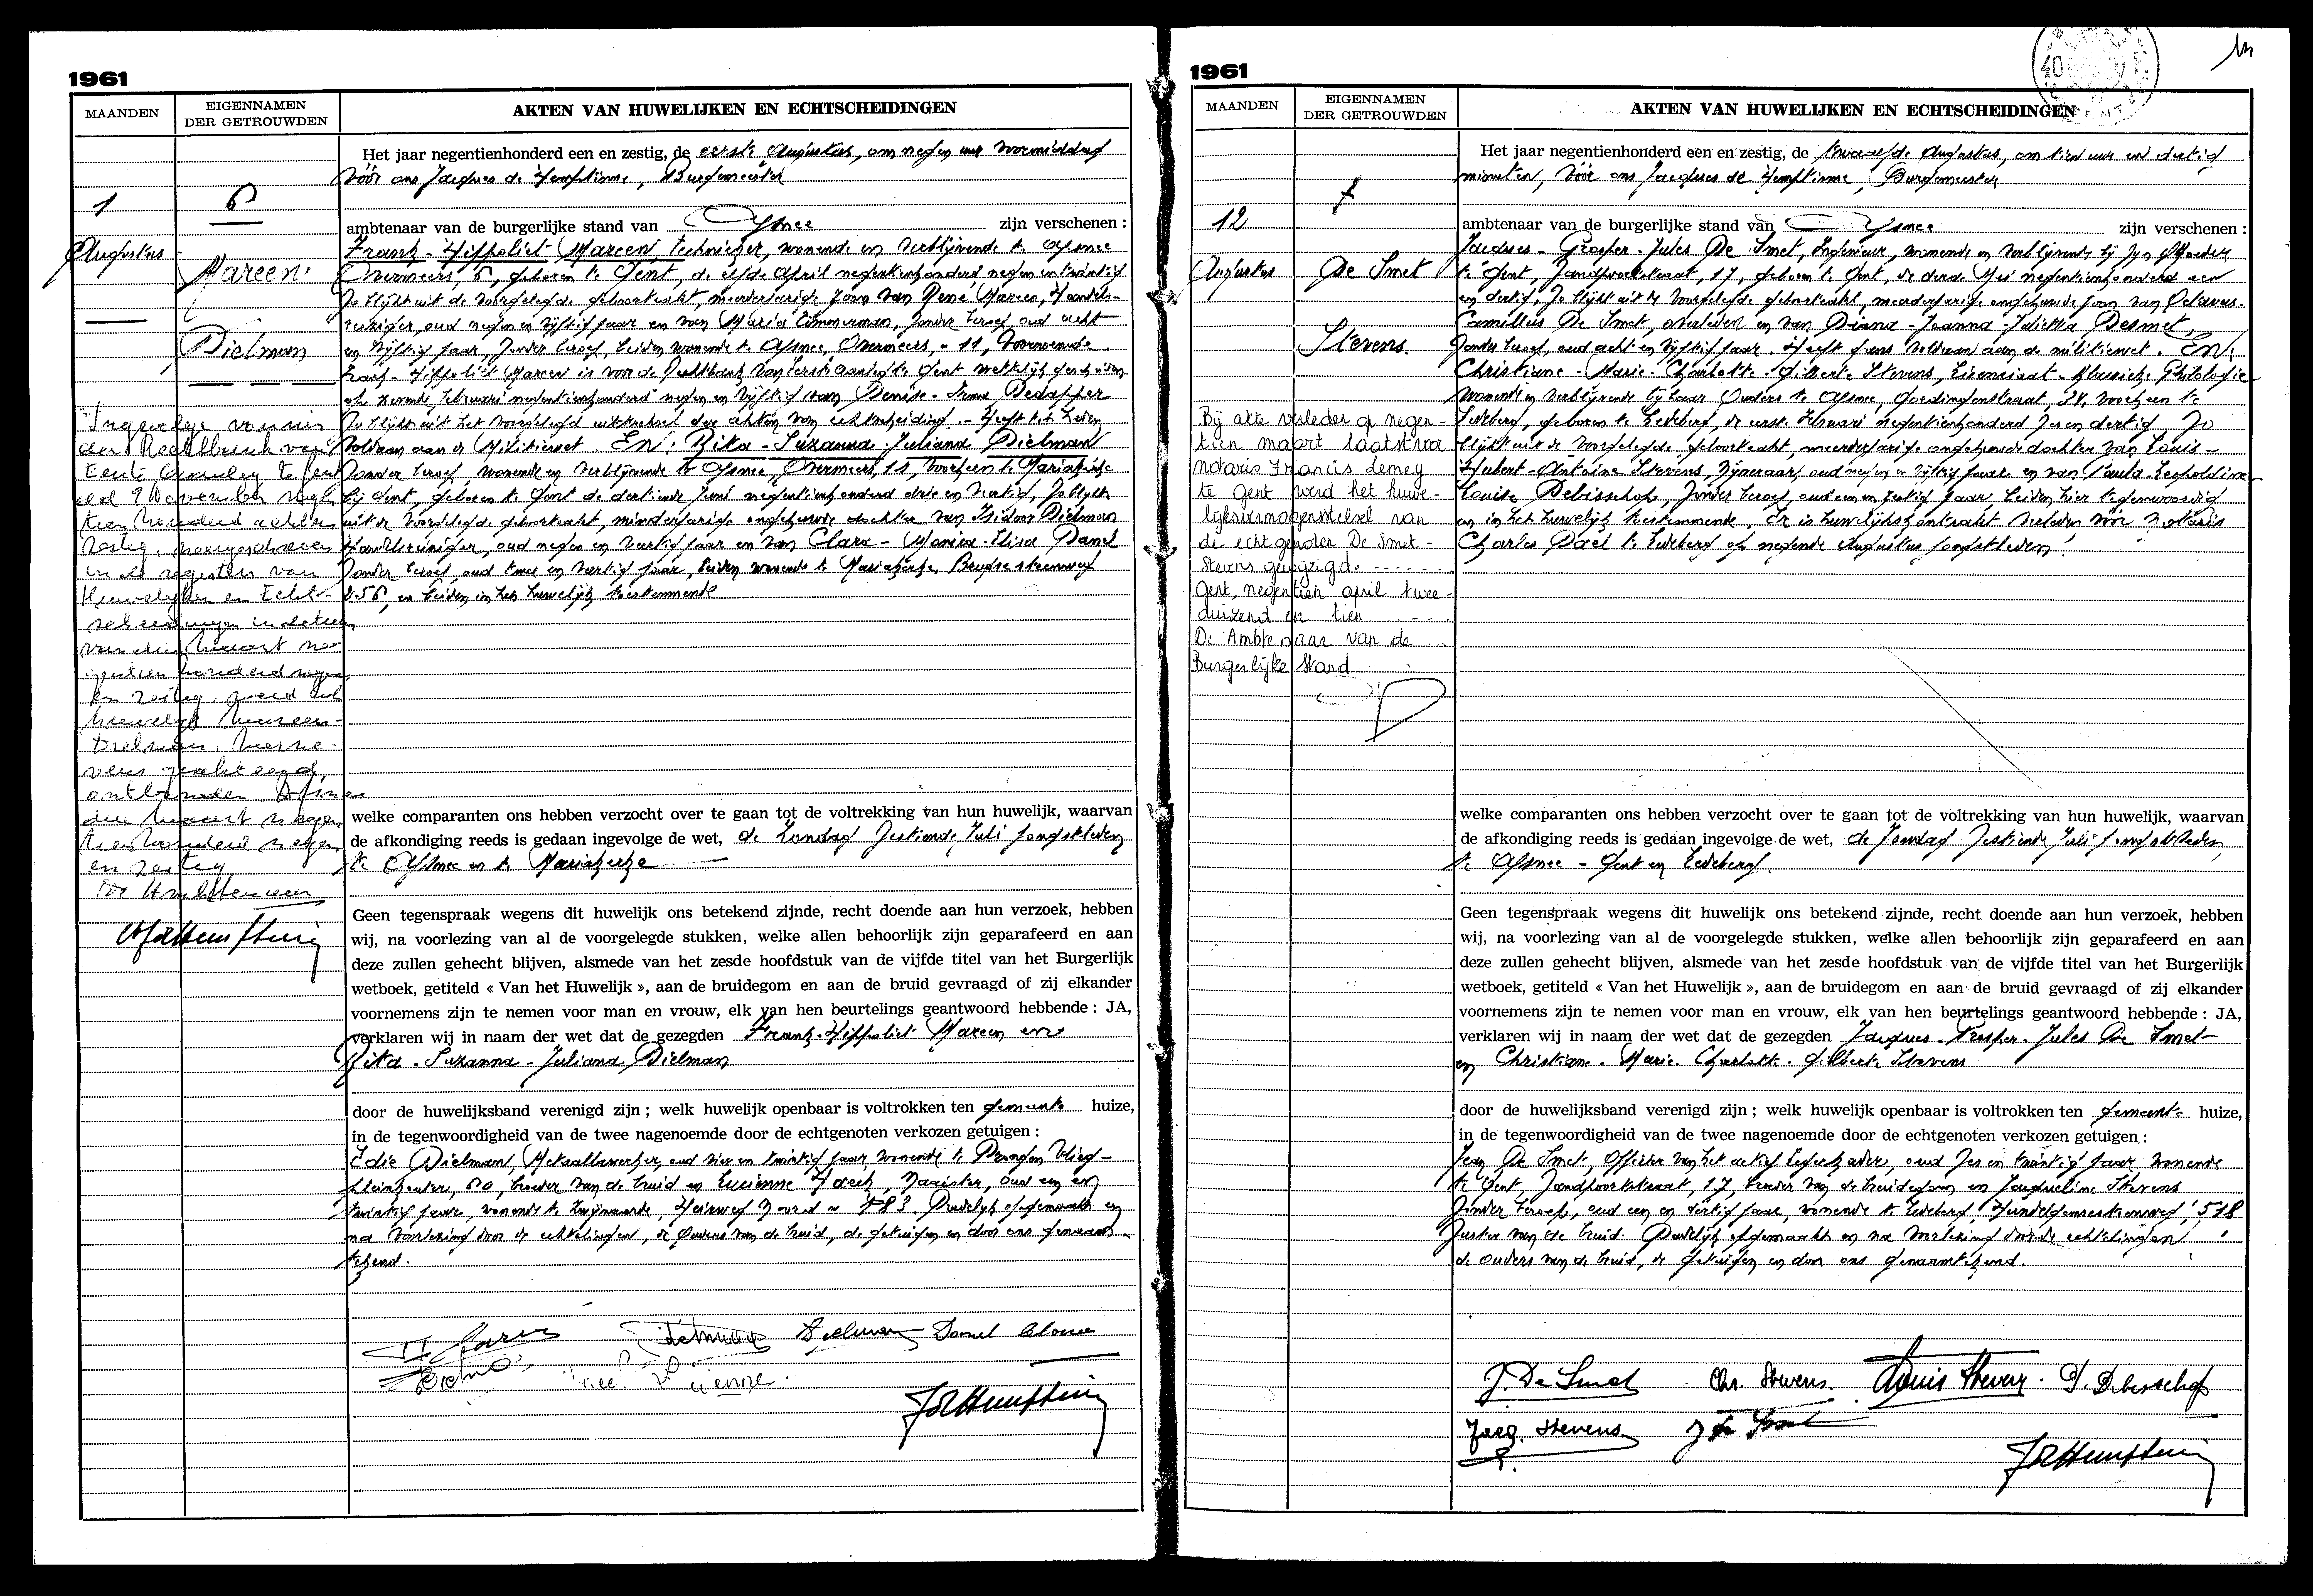 1961
MAANDEN
EIGENNAMEN
DER GETROUWDEN
AKTEN VAN HUWELIJKEN EN ECHTSCHEIDINGEN
Het jaar negentienhonderd een en zestig, de eerste Augustus, om negen uur voormiddag
vóór ons Jacques de Hemptinne, Burgemeester
1
6
ambtenaar van de burgerlijke stand van Afsnee zijn verschenen :
Augustus
Mareen
Frank-Hippoliet Mareen, technieker, wonende en verblijvende te Afsnee
Overmeers, 6, geboren te Gent, de elfde April negentienhonderd negen en twintig
Zo blijkt uit de voorgelegde geboorteakt, meerderjarige zoon van René Mareen, Handels-
reiziger, oud negen en vijftig jaar en van Maria Timmerman, zonder beroep oud acht
Dielman
en vijftig jaar, zonder beroep, beiden wonende te Afsnee, Overmeers, 11, voornoemde
Frank-Hippoliet Mareen is voor de Rechtbank van eerste aanleg te Gent wettelijk gescheiden
Februari negentienhonderd negen en vijftig van Denise-Irma Dedapper
Zo blijkt uit het voorgelegd uittreksel der akten van echtscheiding. Heeft ten leden
voldaan aan de Militiewet. EN: Rita-Suzanna-Juliana Dielman
zonder beroep, wonende en verblijvende te Afsnee, Overmeers, 11, voorheen te Mariakerke
bij Gent, geboren te Gent de dertiende Juni negentienhonderd drie en veertig, Zo blijkt
uit de voorgelegde geboorteakt, minderjarige ongehuwde dochter van Isidoor Dielman
Handelsreiziger, oud negen en veertig jaar en van Clara-Monica-Elisa Danel
zonder beroep, oud twee en veertig jaar, beiden wonende te Mariakerke, Brugse steenweg
256, en beiden in het huwelijk toestemmende
Ingevolge vonnis
der Rechtbank van
Eerste Aanleg te Gent
dd 7 November negen
tien honderd acht en
zestig, overgeschreven
in de registers van
Huwelijken en Echt-
scheidingen in datum
van drie Maart ne-
gentien honderd negen
en zestig werd het
huwelijk Mareen-
Dielman, hierne-
vens geakteerd,
ontbonden Afsnee
drie Maart negen
tienhonderd negen
en zestig
welke comparanten ons hebben verzocht over te gaan tot de voltrekking van hun huwelijk, waarvan
de afkondiging reeds is gedaan ingevolge de wet, de Zondag zestiende Juli jongstleden
te Afsnee en te Mariakerke
Geen tegenspraak wegens dit huwelijk ons betekend zijnde, recht doende aan hun verzoek, hebben
wij, na voorlezing van al de voorgelegde stukken, welke allen behoorlijk zijn geparafeerd en aan
deze zullen gehecht blijven, alsmede van het zesde hoofdstuk van de vijfde titel van het Burgerlijk
wetboek, getiteld « Van het Huwelijk », aan de bruidegom en aan de bruid gevraagd of zij elkander
voornemens zijn te nemen voor man en vrouw, elk van hen beurtelings geantwoord hebbende : JA,
verklaren wij in naam der wet dat de gezegden Frank-Hippoliet Mareen en
Rita-Suzanna-Juliana Dielman
door de huwelijksband verenigd zijn ; welk huwelijk openbaar is voltrokken ten gemeente huize,
in de tegenwoordigheid van de twee nagenoemde door de echtgenoten verkozen getuigen :
Edie Dielman, Metaalbewerker, oud vier en twintig jaar, wonende te Drongen Vlieg-
pleinkouter, 60, broeder van de bruid en Lucienne Haeck, Naaister, oud een en
twintig jaar, wonende te Zwijnaarde, Heirweg Noord n 783. Dadelijk opgemaakt en
na voorlezing door de echtelingen, de Ouders van de bruid, de getuigen en door ons genaam-
tekend.
1961
MAANDEN
EIGENNAMEN
DER GETROUWDEN
AKTEN VAN HUWELIJKEN EN ECHTSCHEIDINGEN
Het jaar negentienhonderd een en zestig, de twaalfde Augustus, om tien uur en dertig
minuten, vóór ons Jacques de Hemptinne, Burgemeester
12
7
ambtenaar van de burgerlijke stand van Afsnee zijn verschenen :
Augustus
De Smet
Jacques-Prosper-Jules De Smet, Ingenieur, wonende en verblijvende bij zijn Moeder
te Gent, Zandpoortstraat, 17, geboren te Gent, de derde Mei negentienhonderd een
en dertig, Zo blijkt uit de voorgelegde geboorteakt, meerderjarige ongehuwde zoon van Octavus-
Stevens.
Camillus De Smet, overleden en van Diana-Joanna-Julietta Desmet,
zonder beroep, oud acht en vijftig jaar. Heeft gans voldaan aan de militiewet. En:
Christiane-Marie-Charlotte-Gilberte Stevens, Licenciaat-Klassieke Philologie
wonende en verblijvende bij haar Ouders te Afsnee, Goedingenstraat, 24, voorheen te
Ledeberg, geboren te Ledeberg, de eerste Februari negentienhonderd zes en dertig, Zo
blijkt uit de voorgelegde geboorteakt, meerderjarige ongehuwde dochter van Louis-
Hubert-Antoine Stevens, Nijveraar, oud negen en vijftig jaar en van Paula-Leopoldine
Louise Debisschop, zonder beroep, oud een en zestig jaar, beiden hier tegenwoordig
en in het huwelijk toestemmende, Er is huwelijkskontrakt verleden vóór Notaris
Charles Dael te Ledeberg op negende Augustus jongstleden.
Bij akte verleden op negen-
tien maart laatst voor
notaris Francis Lemey
te Gent werd het huwe-
lijksvermogensstelsel van
de echtgenoten De Smet-
Stevens gewijzigd.
Gent, negentien april twee-
duizend en tien
De Ambtenaar van de
Burgerlijke Stand
welke comparanten ons hebben verzocht over te gaan tot de voltrekking van hun huwelijk, waarvan
de afkondiging reeds is gedaan ingevolge de wet, de Zondag zestiende Juli jongstleden,
te Afsnee - Gent en Ledeberg.
Geen tegenspraak wegens dit huwelijk ons betekend zijnde, recht doende aan hun verzoek, hebben
wij, na voorlezing van al de voorgelegde stukken, welke allen behoorlijk zijn geparafeerd en aan
deze zullen gehecht blijven, alsmede van het zesde hoofdstuk van de vijfde titel van het Burgerlijk
wetboek, getiteld « Van het Huwelijk », aan de bruidegom en aan de bruid gevraagd of zij elkander
voornemens zijn te nemen voor man en vrouw, elk van hen beurtelings geantwoord hebbende : JA,
verklaren wij in naam der wet dat de gezegden Jacques-Prosper-Jules De Smet
en Christiane-Marie-Charlotte-Gilberte Stevens
door de huwelijksband verenigd zijn ; welk huwelijk openbaar is voltrokken ten gemeente huize,
in de tegenwoordigheid van de twee nagenoemde door de echtgenoten verkozen getuigen :
Jean De Smet, Officier van het actief Legerkader, oud zes en twintig jaar, wonende
te Gent, Zandpoortstraat, 17, broeder van de bruidegom en Jacqueline Stevens
zonder beroep, oud een en dertig jaar, wonende te Ledeberg, Hundelgemsesteenweg, 518
zuster van de bruid. Dadelijk opgemaakt en na voorlezing door de echtelingen
de ouders van de bruid, de getuigen en door ons genaamtekend.
J. De Smet Chr. Stevens Louis Stevens P. Debisschop
Jacq. Stevens J De Smet